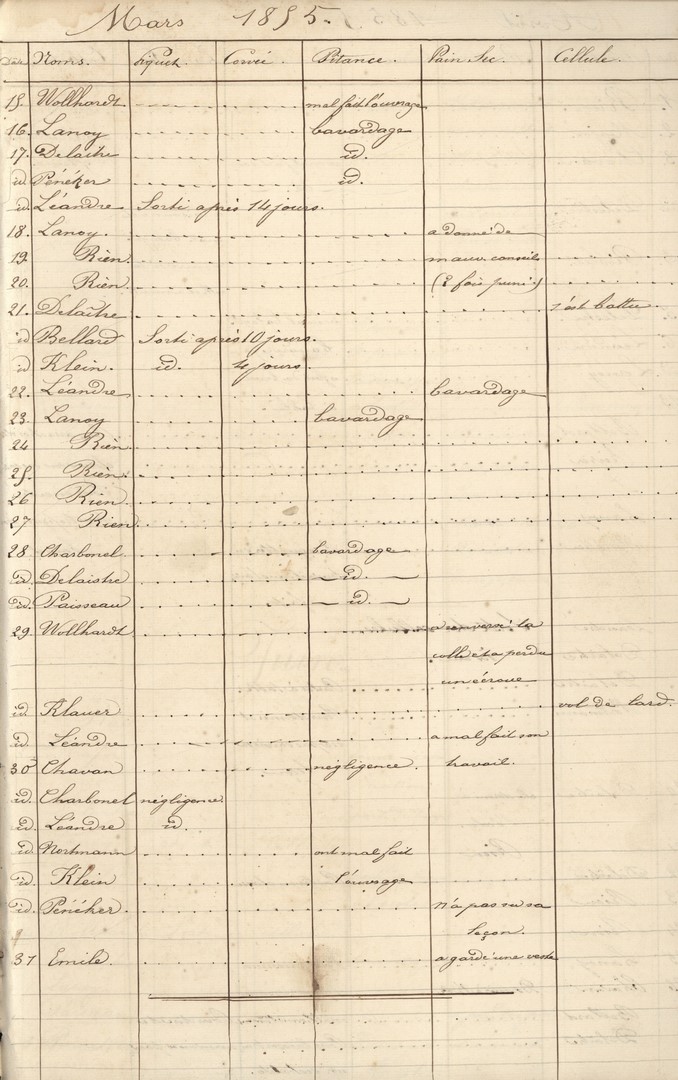 Mars 1855.
Date Noms. Piquet Corvée Pitance. Pain Sec. Cellule.
15. Wollhardt mal fait l'ouvrage
16. Lanoy bavardage
17. Delaitre id.
id Pénéker id.
id. Léandre Sorti après 14 jours.
18. Lanoy. a donné de
19. Rien. mauv. conseils
20. Rien. (2 fois puni.)
21. Delaître s'est battu
id Bellard Sorti après 10 jours.
id Klein. id. 4 jours.
22. Léandre bavardage
23. Lanoy bavardage
24 Rien
25. Rien.
26 Rien
27 Rien
28. Charbonel. bavardage
id. Delaistre id.
id. Paisseau id.
29. Wollhardt a renversé la
colle et a perdu
un écrou
id. Klauer vol de lard.
id. Léandre a mal fait son
30 Chavan négligence. travail.
id. Charbonel négligence.
id. Léandre id.
id. Nortmann ont mal fait
id. Klein l'ouvrage
id. Pénéker. n'a pas su sa
leçon.
31 Emile. a gardé une veste